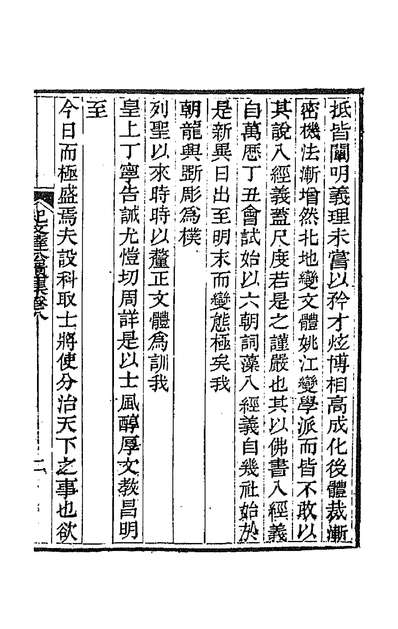 抵皆闡明義理未嘗以矜才炫博相高成化後體裁漸
密機法漸增然北地變文體姚江變學派而皆不敢以
其說入經義蓋尺度若是之謹嚴也其以佛書入經義
自萬厯丁丑會試始以六朝詞藻入經義自幾社始於
是新異日出至明末而變態極矣我
朝龍興斲彫為樸
列聖以來時時以釐正文體為訓我
皇上丁寧告誡尤愷切周詳是以士風醇厚文教昌明
至
今日而極盛焉夫設科取士將使分治天下之事也欲
紀文達公遺集卷八
二